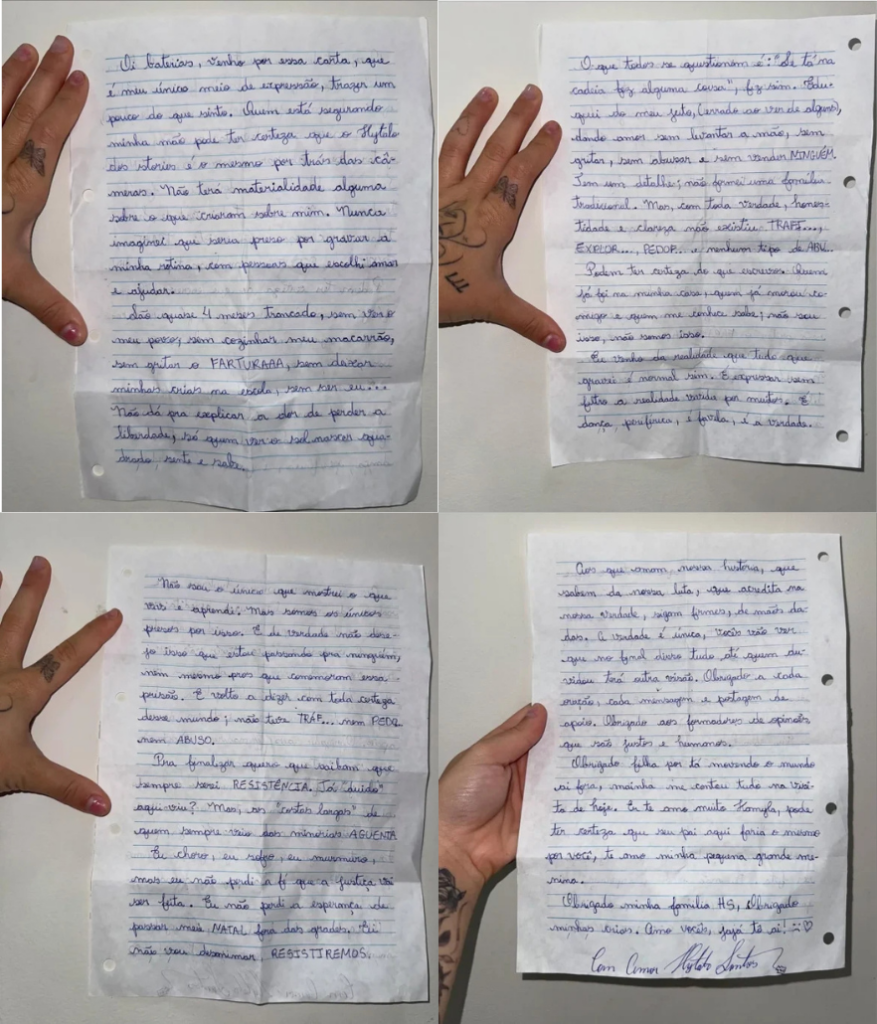 Oi baterias, venho por essa carta, que
é meu único meio de expressão, trazer um
pouco do que sinto. Quem está segurando
minha mão pode ter certeza que o Hytalo
dos stories é o mesmo por trás das câ-
meras. Não terá materialidade alguma
sobre o que criaram sobre mim. Nunca
imaginei que seria preso por gravar a
minha rotina, com pessoas que escolhi amar
e ajudar.
São quase 4 meses trancado, sem ver o
meu povo, sem cozinhar meu macarrão,
sem gritar o FARTURAAA, sem deixar
minhas crias na escola, sem ser eu...
Não dá pra explicar a dor de perder a
liberdade, só quem ver o sol nascer qua-
drado, sente e sabe.
O que todos se questionam é: "Se tá na
cadeia fez alguma coisa", fiz sim. Edu-
quei do meu jeito, (errado ao ver de alguns),
dando amor sem levantar a mão, sem
gritar, sem abusar e sem vender NINGUÉM.
Tem um detalhe; não formei uma família
tradicional. Mas, com toda verdade, hones-
tidade e clareza não existiu TRAFI...,
EXPLOR..., PEDOF.. e nenhum tipo de ABU..
Podem ter certeza do que escrevo. Quem
já foi na minha casa, quem já morou co-
migo e quem me conhece sabe; não sou
isso, não somos isso.
Eu venho da realidade que tudo que
gravei é normal sim. É expressar sem
filtro a realidade vivida por muitos. É
dança, periférica, é favela, é a verdade.
Não sou o único que mostrei o que
vivi e aprendi. Mas somos os únicos
presos por isso. E de verdade não dese-
jo isso que estou passando pra ninguém,
nem mesmo pros que comemoram essa
prisão. E volto a dizer com toda certeza
desse mundo; não teve TRAF... nem PEDO..
nem ABUSO.
Pra finalizar quero que saibam que
sempre serei RESISTÊNCIA. Tá "duido"
aqui viu? Mas, as "costas largas" de
quem sempre veio das minorias AGUENTA
Eu choro, eu sofro, eu murmuro,
mas eu não perdi a fé que a justiça vai
ser feita. Eu não perdi a esperança de
passar meu NATAL fora das grades. Eu
não vou desanimar. RESISTIREMOS.
Aos que amam nossa história, que
sabem da nossa luta, que acredita na
nossa verdade, sigam firmes, de mãos da-
das. A verdade é única, vocês vão ver
que no final disso tudo até quem du-
vidou terá outra visão. Obrigado a cada
oração, cada mensagem e postagem de
apoio. Obrigado aos formadores de opinião
que são justos e humanos.
Obrigado filha por tá movendo o mundo
ai fora, mainha me contou tudo na visi-
ta de hoje. Eu te amo muito Kamyla, pode
ter certeza que seu pai aqui faria o mesmo
por você, te amo minha pequena grande me-
nina.
Obrigado minha família HS, Obrigado
minhas crias. Amo vocês, jajá tô ai!
Com Amor Hytalo Santos